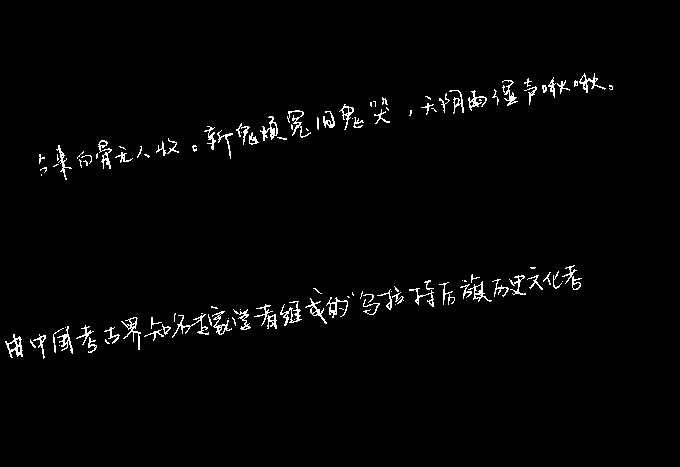 古来白骨无人收。新鬼烦冤旧鬼哭，天阴雨湿声啾啾。
由中国考古界知名专家学者组成的“乌拉特后旗历史文化考